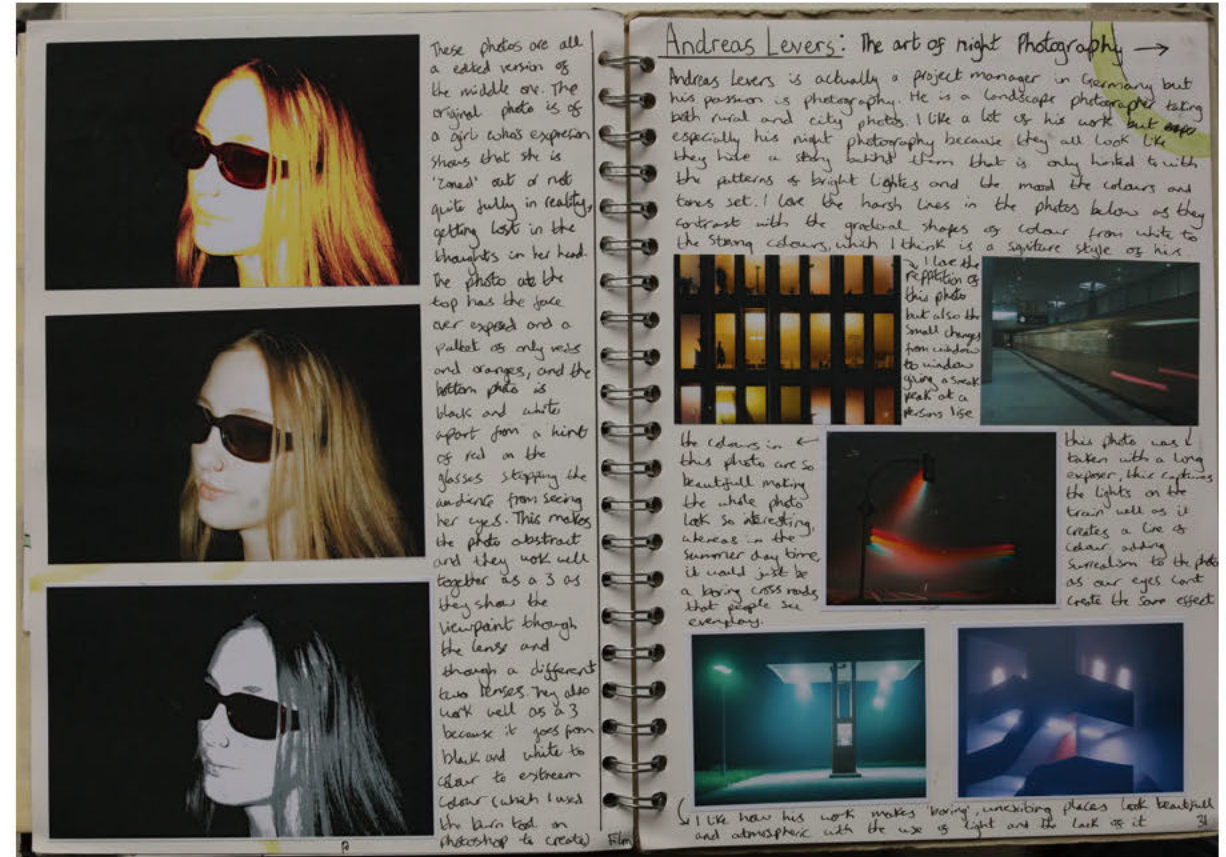 These photos are all
a edited version of
the middle one. The
original photo is of
a girl who's expresion
shows that she is
'zoned' out or not
quite fully in reality,
getting lost in the
thoughts in her head.
The photo at the
top has the face
over exposed and a
pallet of only reds
and oranges, and the
bottom photo is
black and white
apart from a hint
of red on the
glasses stopping the
audience from seeing
her eyes. This makes
the photo abstract
and they work well
together as a 3 as
they show the
viewpoint though
the lense and
though a different
two lenses. They also
work well as a 3
because it goes from
black and white to
colour to extreem
colour (which I used
the burn tool on
photoshop to create)
Film
Andreas Levers: The art of night Photography →
Andreas Levers is actually a project manager in Germany but
his passion is photography. He is a landscape photographer taking
both rural and city photos. I like a lot of his work but
especially his night photography because they all look like
they have a story behind them that is only hinted to with
the patterns of bright lightes and the mood the colours and
tones set. I love the harsh lines in the photos below as they
contrast with the gradual shapes of colour from white to
the strong colours, which I think is a signture style of his.
I love the
reppitition of
this photo
but also the
small changes
from window
to window
giving a sneak
peak at a
persons life
the colours in ←
this photo are so
beautifull making
the whole photo
look so interesting,
whereas in the
summer day time,
it would just be
a boring cross roads
that people see
everyday.
this photo was
taken with a long
exposer, this captures
the lights on the
train well as it
creates a line of
colour adding
surrealism to the photo
as our eyes cant
create the same effect
I like how his work makes 'boring', unexsiting places look beautifull
and atmospheric with the use of light and the lack of it
31